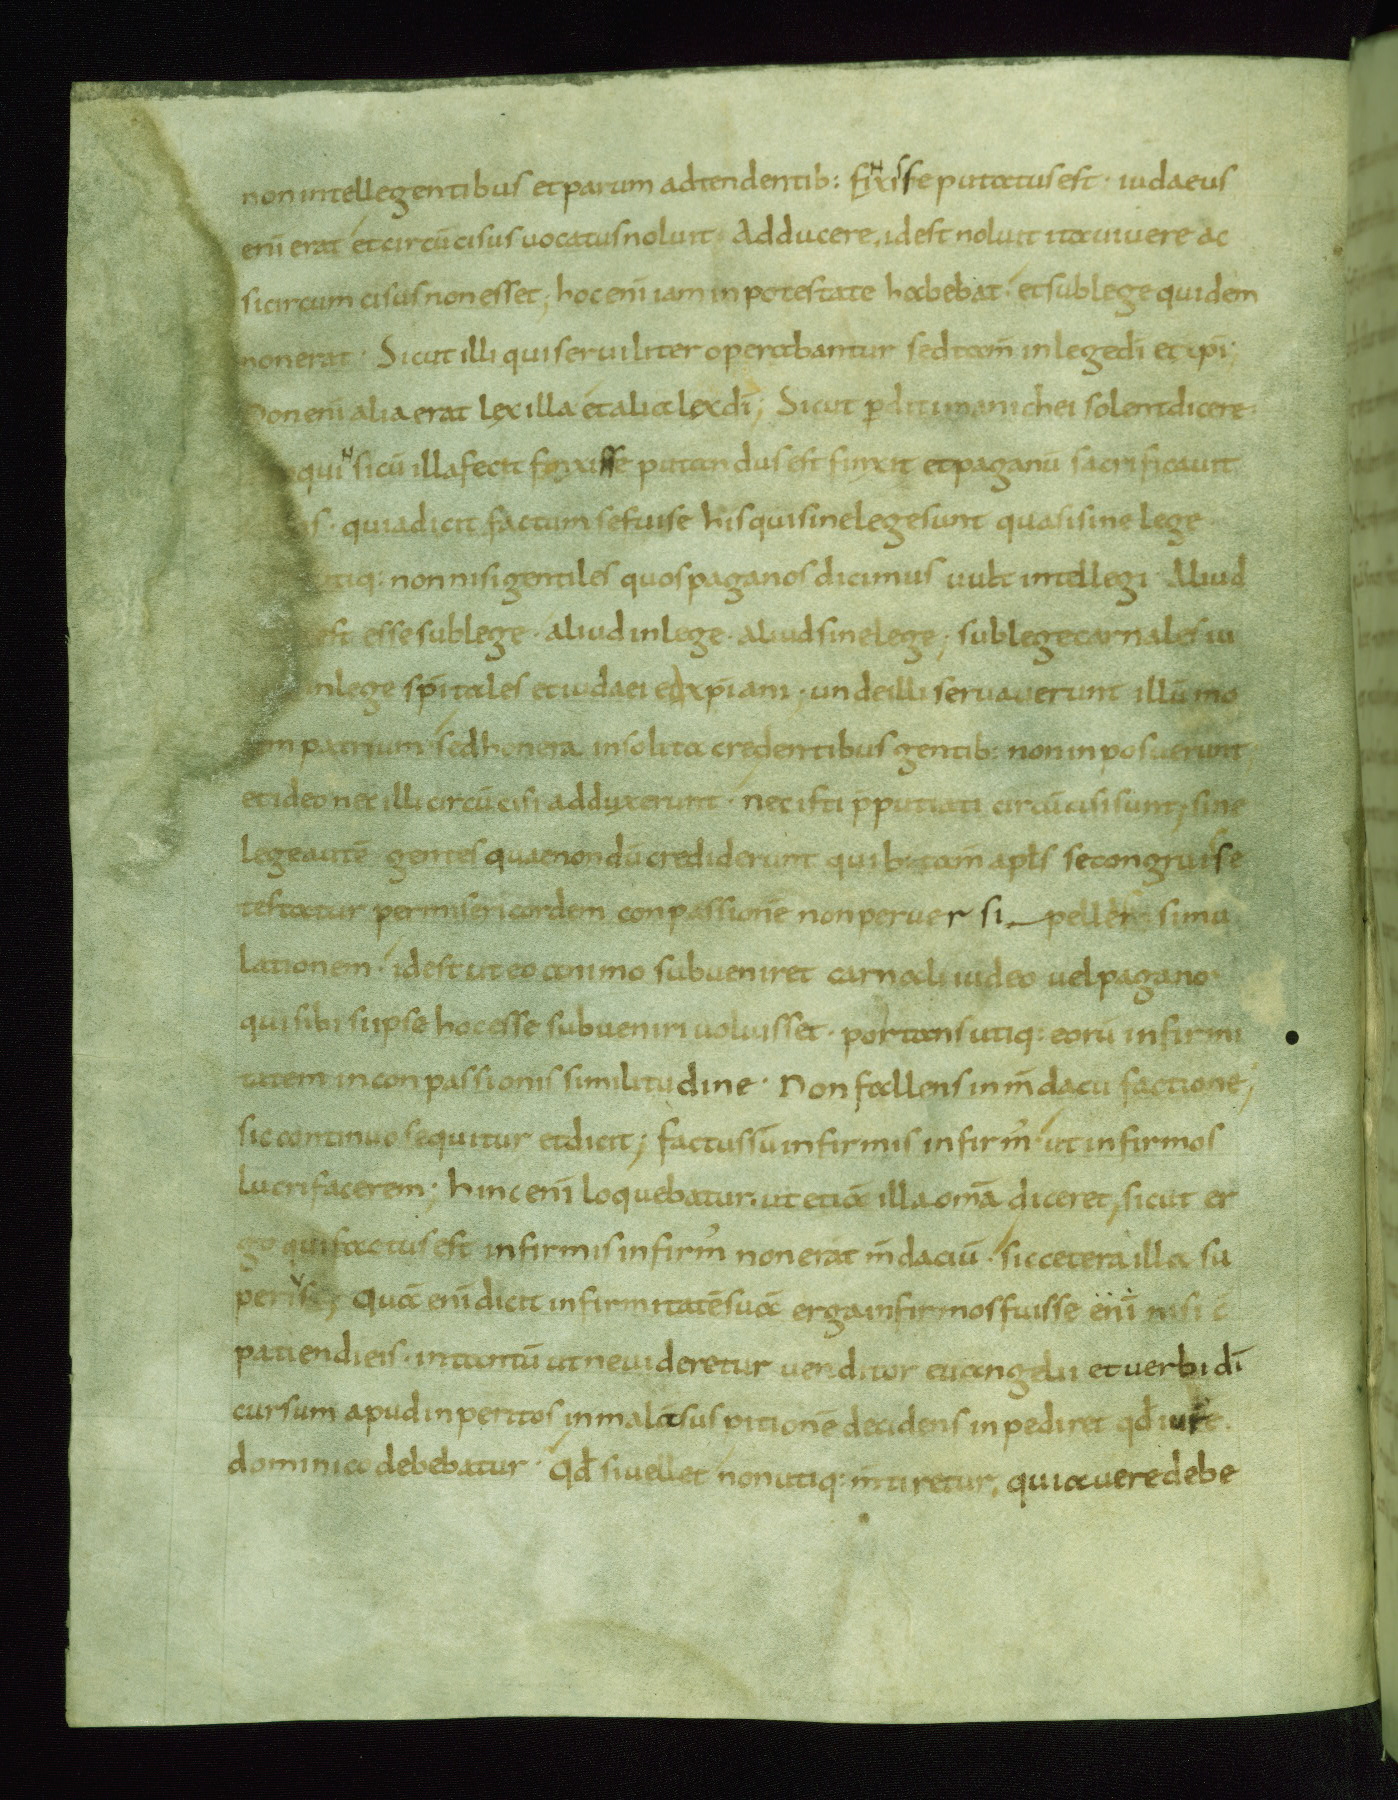 non intellegentibus et parum adtendentib: fiNxisse putatus est · iudaeus
enī erat et circūcisus uocatus noluit · Adducere, id est noluit ita uiuere ac
si circum cisus non esset; hoc enī iam in potestate habebat · et sub lege quidem
non erat · Sicut illi qui seruiliter operabantur sed tam̄ in lege dī et xp̄i;
Non enī alia erat lex illa et alia lex dī; Sicut ꝑditi manichei solent dicere·
qui N sicū illa fecit finxisse putandus est finxit et paganū sacrificauit
quia dicit factum se fuise his qui sine lege sunt quasi sine lege
utiq: non nisi gentiles quos paganos dicimus uult intellegi Aliud
est esse sub lege · aliud in lege · aliud sine lege; sub lege carnales iu
in lege spīitales et iudaei et xpīani; unde illi seruauerunt illū mo
rem patrium sed honera insolita credentibus gentib: non inposuerunt
et ideo nec illi circūcisi adduxerunt · nec isti p̄putiati circūcisi sunt; sine
lege autē gentes quae non dū crediderunt quib: tam̄ apl̄s se congruisse
testatur per misericordem conpassionē non per uersipellem simu
lationem · id est ut eo animo subueniret carnali iudeo uel pagano·
qui sibi si ipse hoc esse subueniri uoluisset · portans utiq: eorū infirmi
tatem in conpassionis similitudine · Non fallens in m̄dacii factione;
sic continuo sequitur et dicit; factus sū infirmis infirm̄ ut infirmos
lucri facerem; hinc enī loquebatur. ut etiā illa omā diceret; sicut er
go qui factus est infirmis infirm̄ non erat m̄daciū · sic cetera illa su
Quā enī dicit infirmitatē suā erga infirmos fuisse enī nisi c̄
patiendi eis · in tantū ut ne uideretur uenditor euangelii et uerbi dī
cursum apud inperitos in malā suspitionē decidens inpediret qđ iure
dominico debebatur · Qđ si uellet non utiq: m̄tiretur, quia uere debe